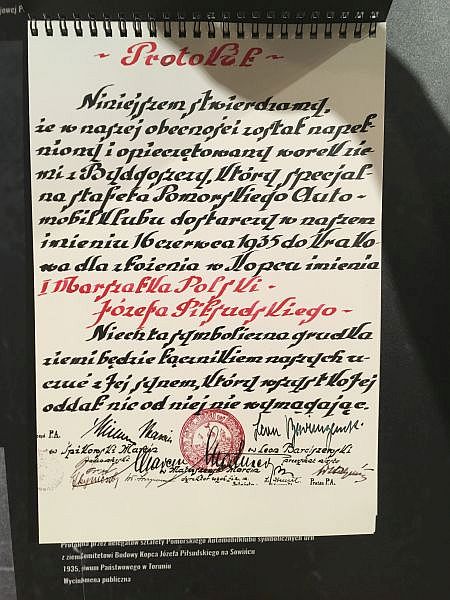 ~ Protokuk ~
Niniejszem stwierdzamy,
że w naszej obecności został napeł-
niony i opieczętowany worek zie-
mi z Bydgoszczy, który specjal-
na stafeta Pomorskiego Auto-
mobilklubu dostarczy w naszem
imieniu 16 czerwca 1935 do Krako-
wa dla złożenia w Kopcu imienia
I Marszałka Polski -
Józefa Piłsudskiego -
Niech ta symboliczna grudka
ziemi będzie łącznikiem naszych u-
czuć z Jej synem, który wszystko Jej
oddał nic od niej nie wymagając.
P.A.
w Leon Barciszewski
Prezes P.A.
przez delegatów sztafety Pomorskiego Automobilklubu symbolicznych urn
z ziemią Komitetowi Budowy Kopca Józefa Piłsudskiego na Sowińcu
1935, Państwowego w Toruniu
publiczna